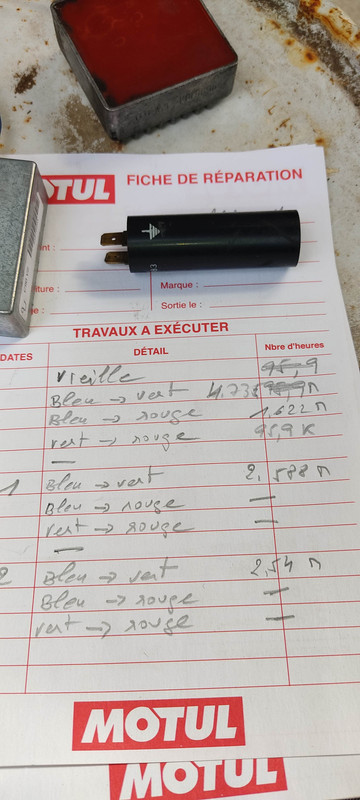 MOTUL FICHE DE RÉPARATION
Marque :
Sortie le :
TRAVAUX A EXÉCUTER
DATES DÉTAIL Nbre d'heures
Vieille 95,9
Bleu → vert 4,735 95,9 M
Bleu → rouge 1,622 M
vert → rouge 95,9 K
—
1 Bleu → vert 2,588 M
Bleu → rouge —
vert → rouge —
—
2 Bleu → vert 2,54 M
Bleu → rouge —
vert → rouge —
MOTUL
MOTUL